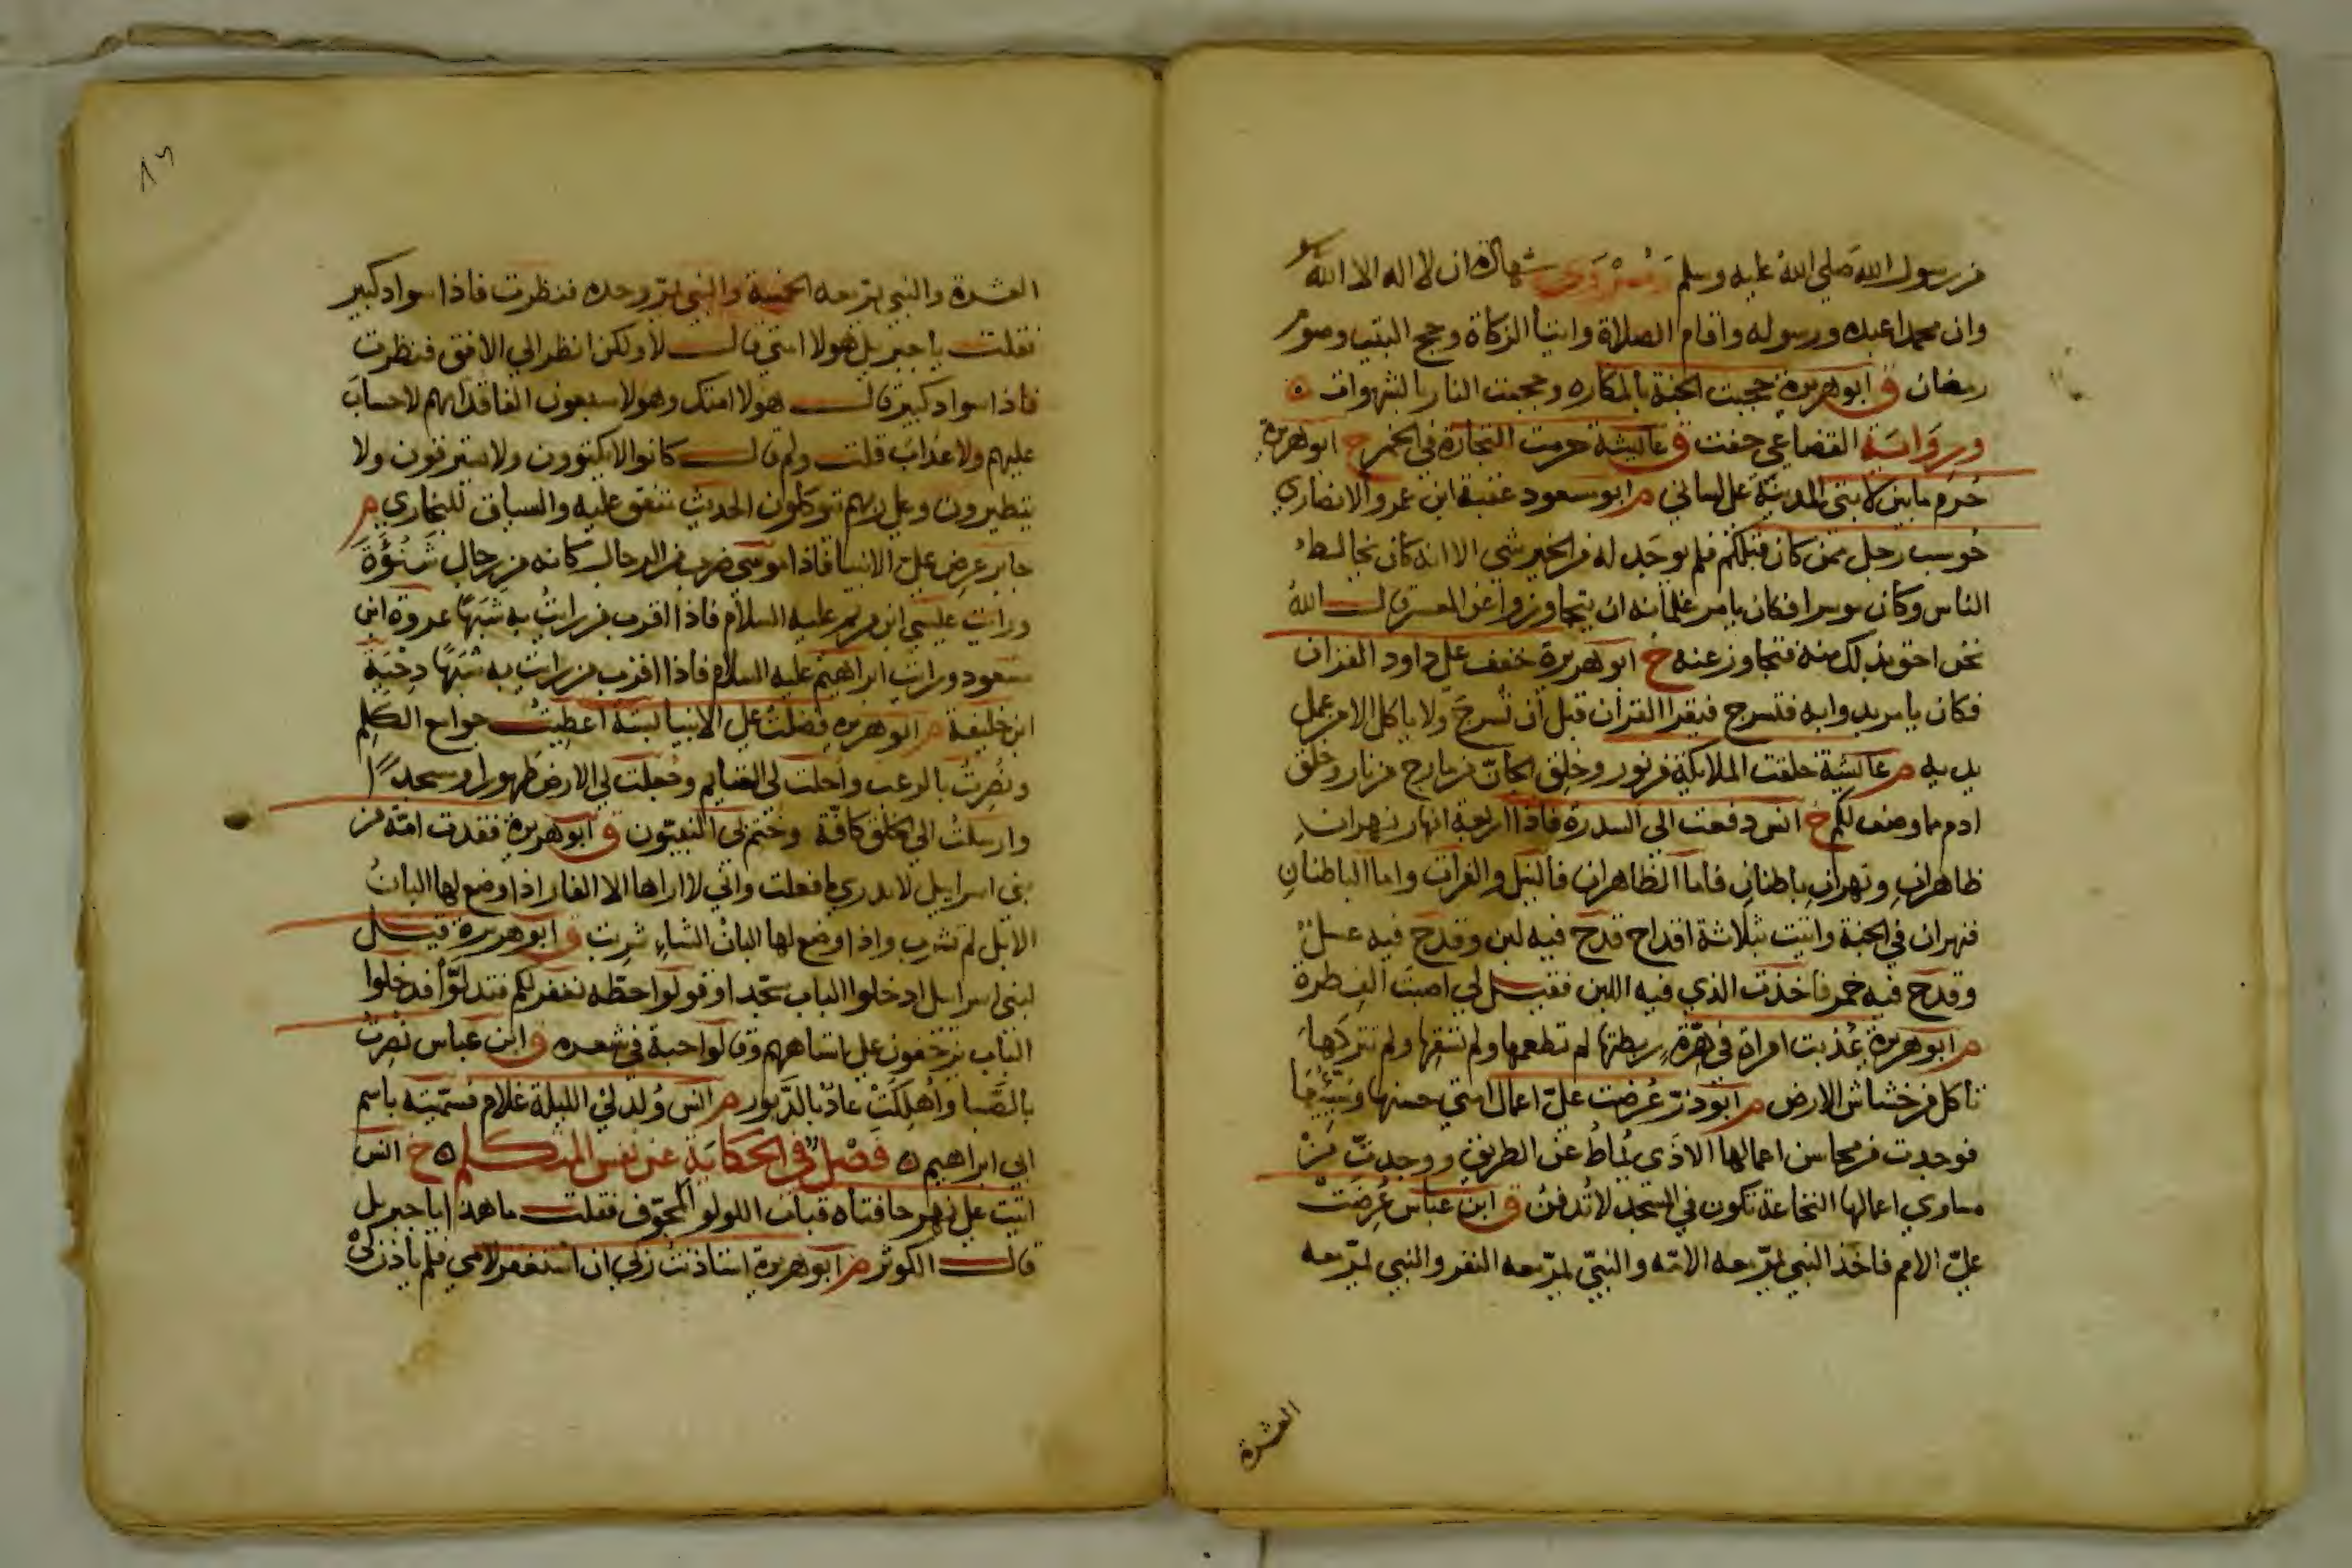 من رسول الله صلى الله عليه وسلم شهادة ان لا اله الا الله
وان محمدا عبده ورسوله واقام الصلاة وايتا الزكاة وحج البيت وصوم
رمضان ق ابو هريرة حجبت الجنة بالمكاره وحجبت النار بالشهوات ه
ورواية القضاعي حفت ق عايشة حرمت التجارة في الخمر خ ابو هريرة
حُرم ما بين لابتي المدينة على لساني م ابو مسعود عقبة ابن عمرو الانصاري
حوسب رجل ممن كان قبلكم فلم يوجد له من الخير شي الا انه كان يخالط
الناس وكان موسرا فكان يامر غلمانه ان يتجاوزوا عن المعسر قال الله
نحن احق بذلك منه فتجاوز عنه خ ابو هريرة خفف على داود القران
فكان يامر بدوابه فتسرج فيقرا القران قبل ان تُسرج ولا ياكل الا من عمل
يديه م عايشة خلقت الملايكة من نور وخلق الجانّ من مارج من نار وخلق
ادم مما وصف لكم خ انس دفعت الى السدرة فاذا اربعة انهار نهران
ظاهران ونهران باطنان فاما الظاهران فالنيل والفرات واما الباطنان
فنهران في الجنة واتيت بثلاثة اقداح قدح فيه لبن وقدح فيه عسل
وقدح فيه خمر فاخذت الذي فيه اللبن فقيل لي اصبت الفطرة
م ابو هريرة عُذبت امراة في هرّة ربطتها لم تطعمها ولم تسقها ولم تتركها
تاكل من خشاش الارض م ابو ذرّ عُرضت عليّ اعمال امتي حسنها وسيّئها
فوجدت من محاسن اعمالها الاذى يُماطُ عن الطريق ووجدت من
مساوي اعمالها النخاعة تكون في المسجد لا تُدفن ق ابن عباس عُرضت
عليّ الامم فاخذ النبي يمرّ معه الامّة والنبيّ يمرّ معه النفر والنبي يمرّ معه
العشرة
٨٦
العشرة والنبي يمر معه الخمسة والنبي يمرّ وحده فنظرت فاذا سواد كبير
فقلت يا جبريل هولا امتي قال لا ولكن انظر الى الافق فنظرت
فاذا سواد كبير قال هولا امتك وهولا سبعون الفا قدامهم لا حساب
عليهم ولا عذاب قلت ولم قال كانوا لا يكتوون ولا يسترقون ولا
يتطيرون وعلى ربهم يتوكلون الحديث متفق عليه والسياق للبخاري م
جابر عرض عليّ الانبيا فاذا موسى ضرب من الرجال كانه من رجال شَنُوءَة
ورايت عيسى ابن مريم عليه السلام فاذا اقرب من رايتُ به شَبَهًا عروة ابن
مسعود ورايت ابراهيم عليه السلام فاذا اقرب من رايت به شبهًا دِحْيَة
ابن خليفة م ابو هريرة فضلتُ على الانبيا بستة اعطِيتُ جوامع الكلِم
ونُصِرتُ بالرعب واحلت لي الغنايم وجُعلت لي الارض طهورا ومسجدًا
وارسلتُ الى الخلق كافّة وخُتم لى النبيّون ق ابو هريرة فقدت امّة من
بني اسراييل لا يدري ما فعلت واني لا اراها الا الفار اذا وضع لها البانُ
الابل لم تشرب واذا وضع لها البان الشاءِ شربت ق ابو هريرة قيل
لبني اسرايل ادخلوا الباب سجّدا وقولوا حطّه نغفر لكم فبدلوّا فدخلوا
الباب يزحفون على استاههم وقالوا حبة في شعره ق ابن عباس نُصِرتُ
بالصَّبا واُهلِكَتْ عادٌ بالدَّبور م انس وُلد لي الليلة غلام فسمّيته باسم
ابي ابراهيم ه فَصْل في الحكاية عن نفس المتكلم ه خ انس
اتيت على نهر حافتاه قباب اللولو المجوّف فقلت ما هذا يا جبريل
قال الكوثر م ابو هريرة استاذنت ربي ان استغفر لامي فلم ياذن لي